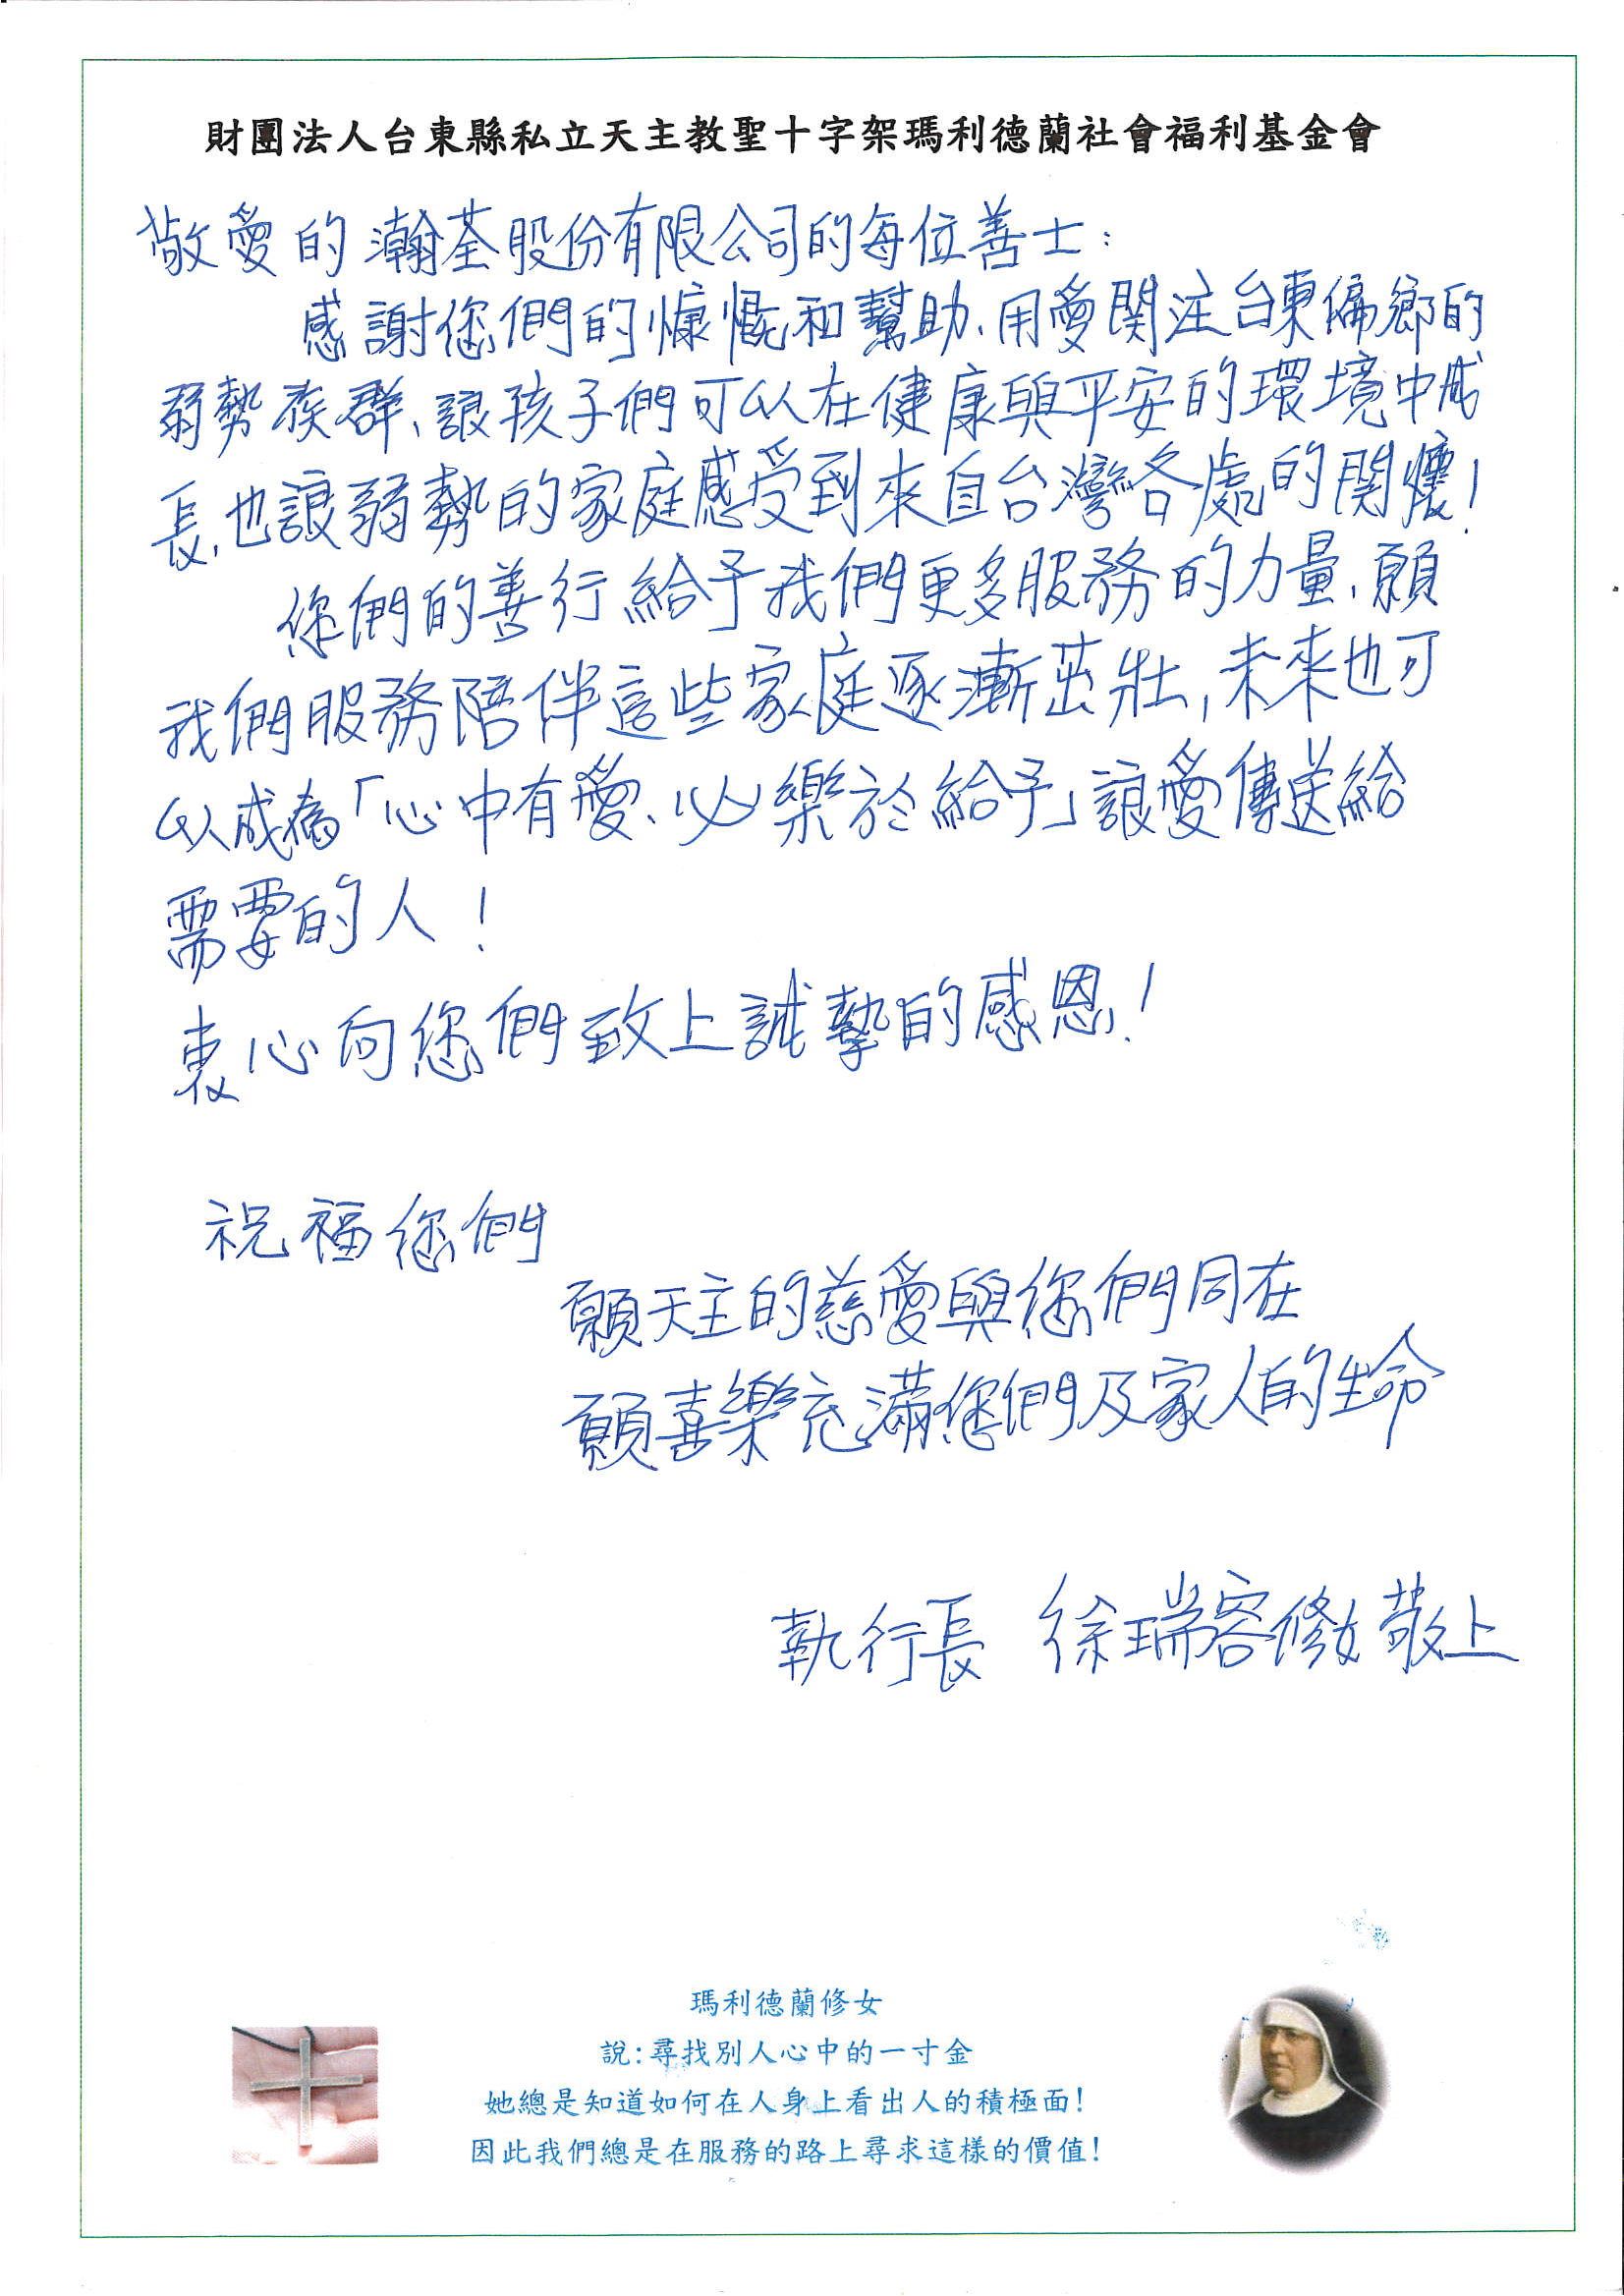 財團法人台東縣私立天主教聖十字架瑪利德蘭社會福利基金會
敬愛的瀚荃股份有限公司的每位善士：
感謝您們的慷慨和幫助、用愛關注台東偏鄉的
弱勢族群、讓孩子們可以在健康與平安的環境中成
長,也讓弱勢的家庭感受到來自台灣各處的關懷!
您們的善行給予我們更多服務的力量、願
我們服務陪伴這些家庭逐漸茁壯,未來也可
以成為「心中有愛、必樂於給予」讓愛傳送給
需要的人!
衷心向您們致上誠摯的感恩!
祝福您們
願天主的慈愛與您們同在
願喜樂充滿您們及家人的生命
執行長 徐瑞容修女敬上
瑪利德蘭修女
說:尋找別人心中的一寸金
她總是知道如何在人身上看出人的積極面!
因此我們總是在服務的路上尋求這樣的價值!